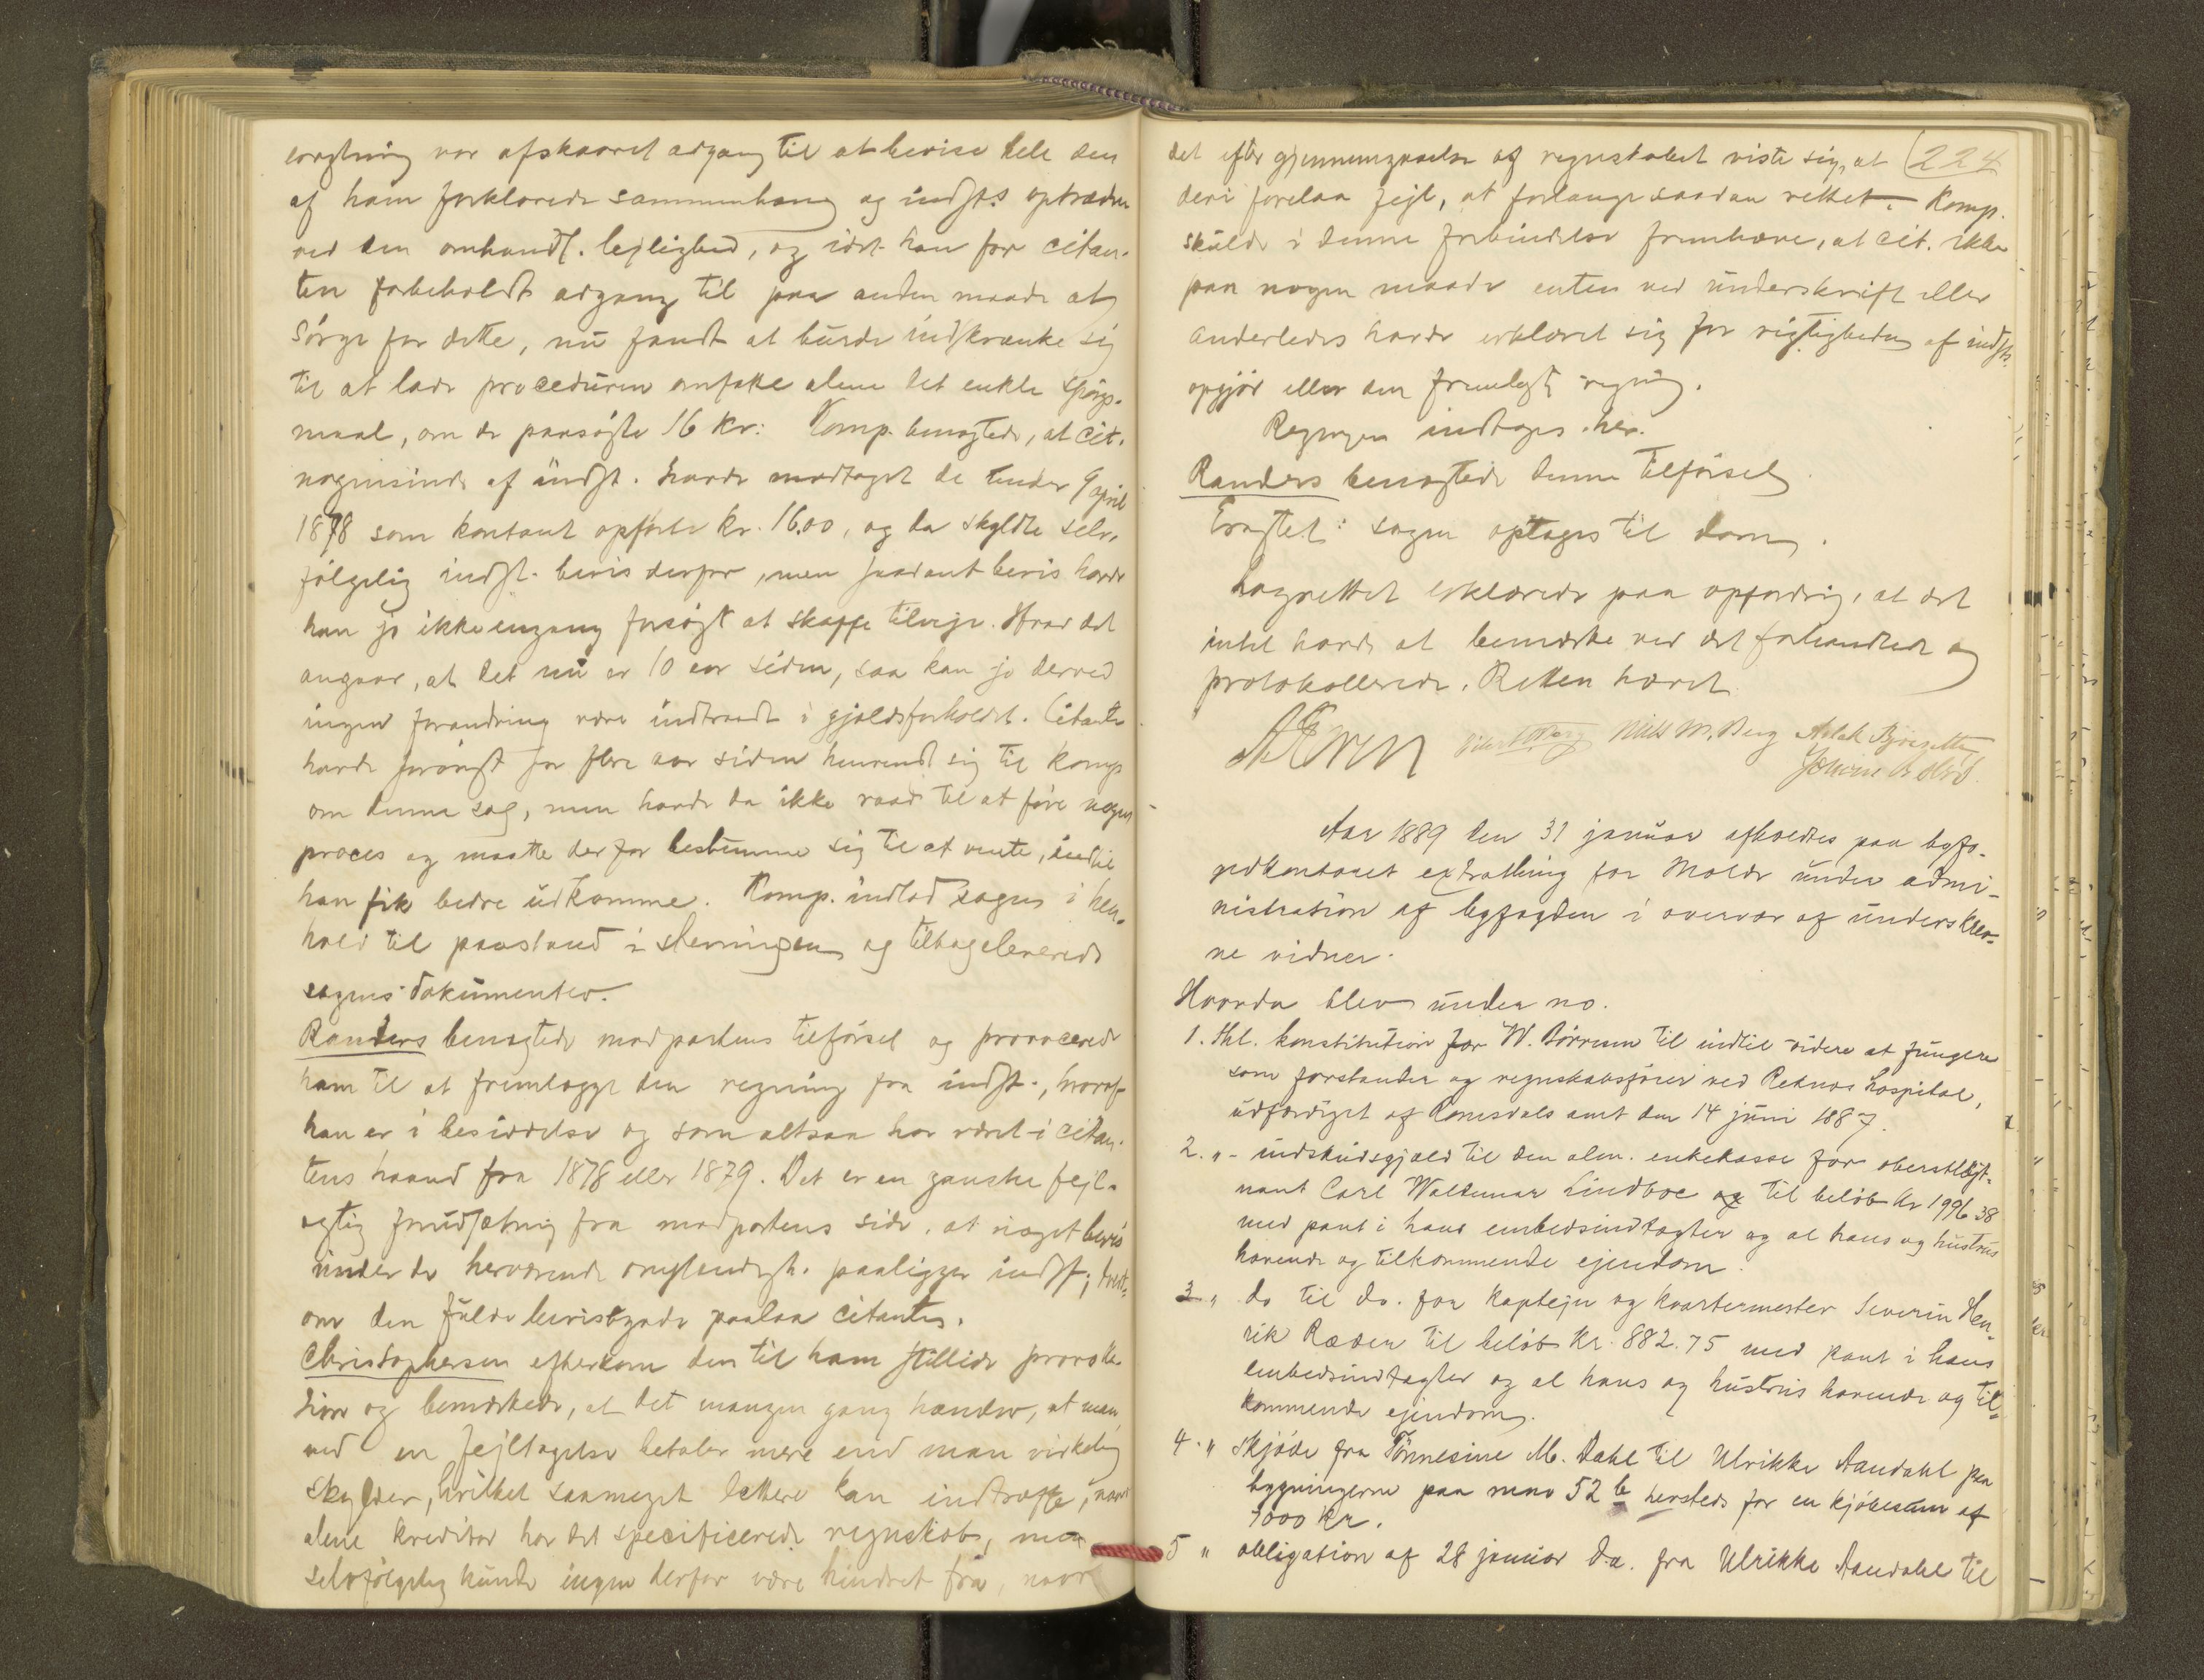 var afskaaret adgang til at bevise hele den
af ham forklarede sammenhæng og indst.s optræden
ved den omhandl. lejlighed, og idet han for citan-
ten forbeholdt adgang til paa anden maade at
sørge for dette, nu fandt at burde indskrænke sig
til at lade proceduren omfatte alene det enkle spørgs-
maal, om de paasøgte 16 kr: Komp. benægtede, at cit.
nogensinde af indst. havde modtaget de under 9 april
1878 som kontant opførte kr. 16.00, og da skyldte selv-
følgelig indst. bevis derfor, men saadant bevis havde
han jo ikke engang forsøgt at skaffe tilveje. Hvad det
angaar, at det nu er 10 aar siden, saa kan jo derved
ingen forandring være indtraadt i gjældsforholdet. Citanten
havde forøvrigt for flere aar siden henvendt sig til komp.
om denne sag, men havde da ikke raad til at føre nogen
proces og maatte derfor bestemme sig til at vente, indtil
han fik bedre udkomme. Komp. indlod sagen i hen-
hold til paastand i stevningen og tilbageleverede
sagens dokumenter.
Randers benægtede modpartens tilførsel og provocerede
ham til at fremlægge den regning fra indst., hvoraf
han er i besiddelse og som altsaa har været i citan-
tens haand fra 1878 eller 1879. Det er en ganske fejl-
agtig forudsætning fra modpartens side, at noget bevis
under de herværende omstendigh. paaligger indst; tvert-
om den fulde bevisbyrde paalaa citanten.
Christophersen efterkom den til ham stillede provoka-
tion og bemærkede, at det mangen gang hænder, at man
ved en fejltagelse betaler mere end man virkelig
skylder, hvilket saameget lettere kan indtræffe, naar
alene kreditor har det specificerede regnskab, men
selvfølgelig kunde ingen derfor være hindret fra, naar
det efter gjennemgaaelse af regnskabet viste sig, at 224
deri forelaa fejl, at forlange saadan rettet. Komp.
skulde i denne forbindelse fremhæve, at cit. ikke
paa nogen maade enten ved underskrift eller
anderledes havde erklæret sig for rigtigheden af indst.s
opgjør eller den fremlagte regning.
Regningen indtages her.
Randers benægtede denne tilførsel.
Eragtet: sagen optages til dom.
Lagrettet erklærede paa opfordring, at det
intet havde at bemærke ved det forhandlede og
protokollerede. Retten hævet.
Nils M. Berg Aslak
Aar 1889 den 31 januar afholdtes paa byfo-
gedkontoret extrathing for Molde under admi-
nistration af byfogden i overvær af underskrev-
ne vidner.
Hvorda blev under no.
1. thl. konstitution for W. Dørrum til indtil videre at fungere
som forstander og regnskabsfører ved Reknes hospital,
udfærdiget af Romsdals amt den 14 juni 1887.
2. " - indskudsgjæld til den alm. enkekasse for oberstløjt-
nant Carl Waldemar Lindboe og til beløb kr 1996 38
med pant i hans embedsindtægter og al hans og hustrus
havende og tilkommende ejendom.
3 " do til do. for kaptejn og kvartermester Severin Hen-
rik Ræder til beløb kr. 882.75 med pant i hans
embedsindtægter og al hans og hustrus havende og til-
kommende ejendom.
4. " skjøde fra Tønnesine M. Dahl til Ulrikke Aandahl paa
bygningerne paa mno 52 b hersteds for en kjøbesum af
4000 kr.
5 " obligation af 28 januar d.a. fra Ulrikke Aandahl til